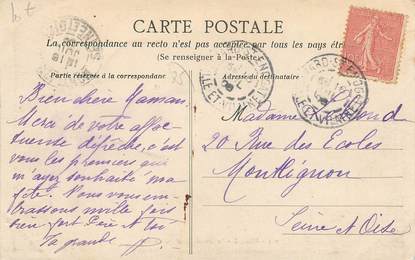 CARTE POSTALE
La correspondance au recto n'est pas acceptée par tous les pays étra
(Se renseigner à la Poste)
Partie réservée à la correspondance
Adresse du destinataire
Bien chère Maman
Merci de votre affec-
tueuse dépêche, c'est
vous les premiers qui
m'ayez souhaité ma
fête. Nous vous em-
brassons mille fois
bien fort Père et toi
Ta grande
Madame
20 Rue des Ecoles
Montlignon
Seine et Oise